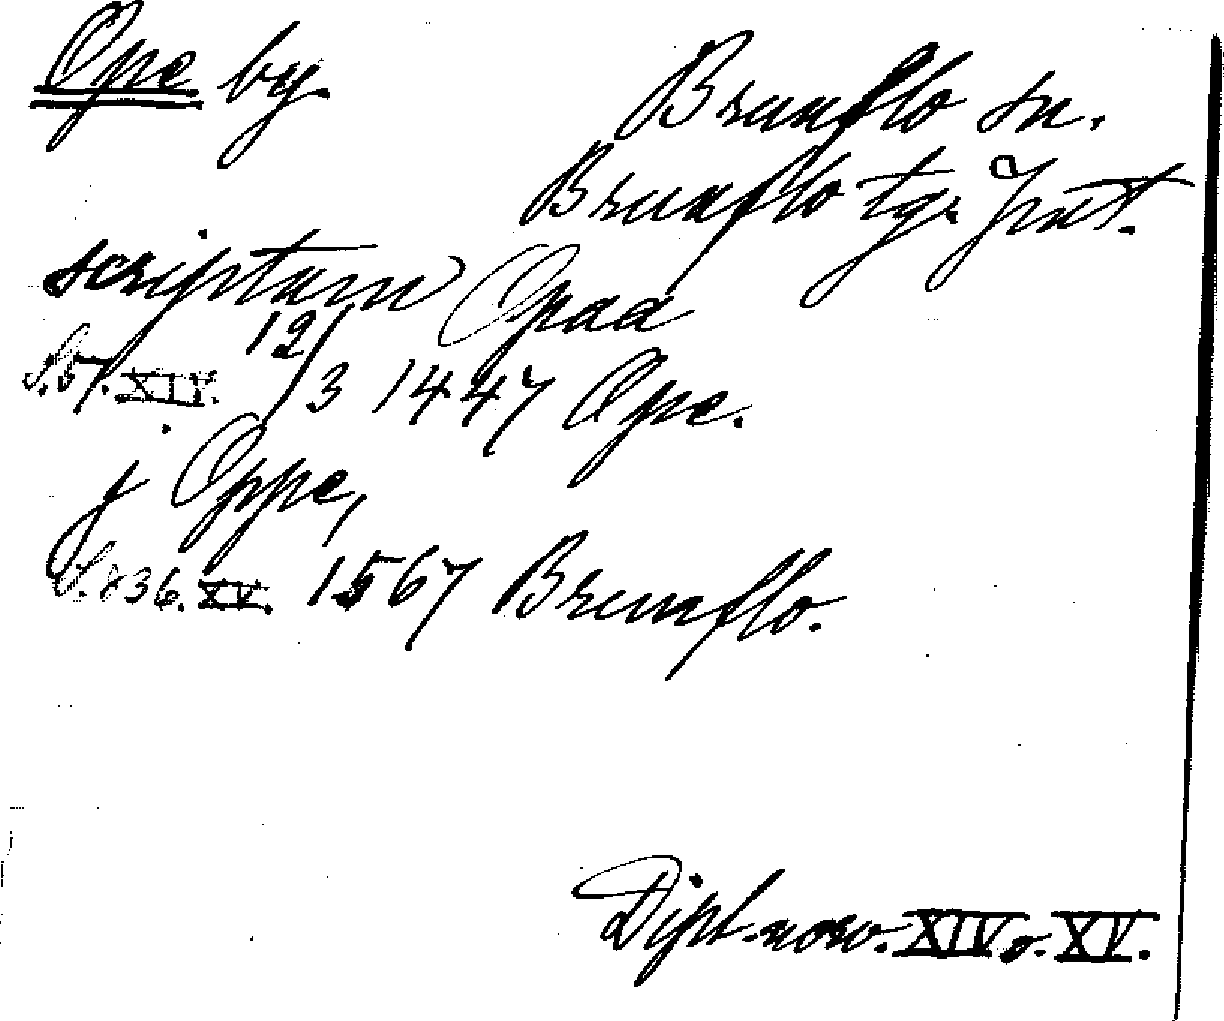 Ope by. Brunflo sn.
Brunflo tg. Jmt.
scriptum Opaa
S. 57. XIV. 12/3 1447 Ope.
j Oppe,
S. 836. XV. 1567 Brunflo.
Dipl. norv. XIV o. XV.